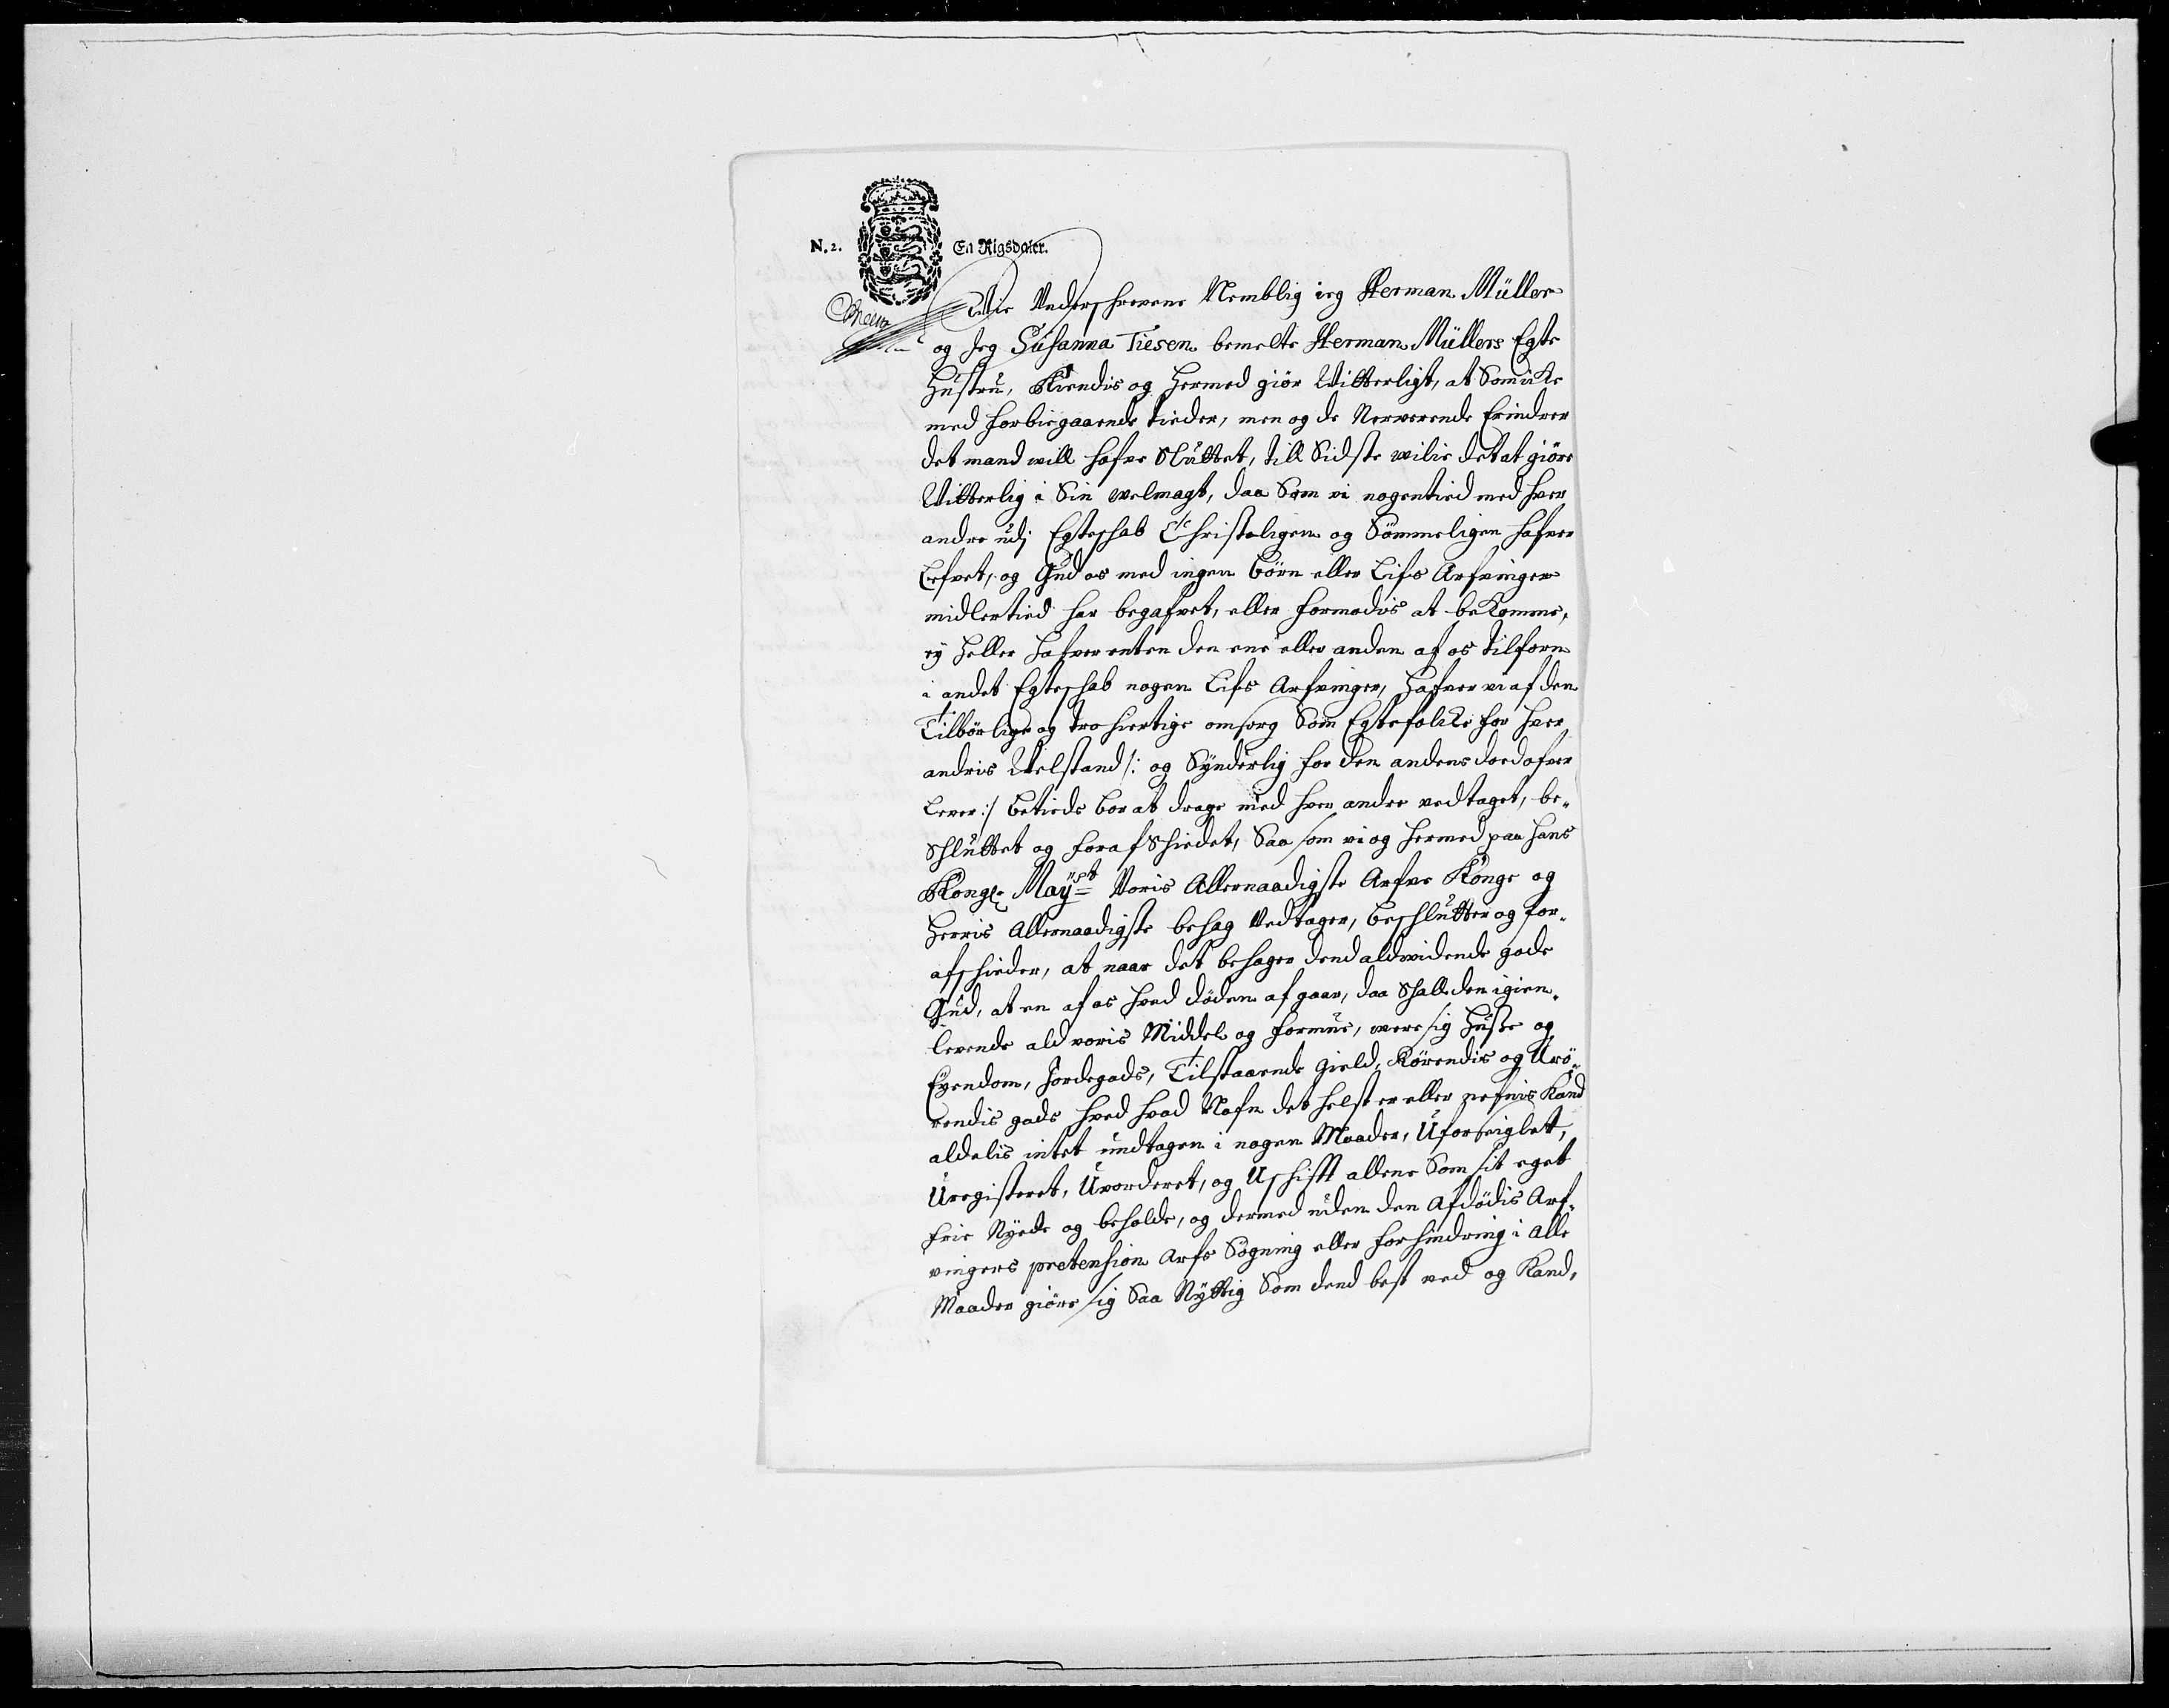 N. 2.
En Rigsdaler.
Wie Underschrevene Nemblig ieg Herman Müller
og Jeg Susanna Tiesen bemelte Herman Müllers Egte
Hustru, Kiendis og hermed giör Witterligt, at Som icke
med forbiegaaende tieder, men og de Nerverende Erindrer
det mand will hafve Sluttet, till Sidste wilie det at giöre
Witterlig i Sin velmagt, daa Som vi nogentied med hver
andre udj Egteschab Christeligen og Sömmeligen hafver
Lefvet, og Gud os med ingen börn eller Lifs Arfvinger
midlertied har begafvet, eller formodis at bekomme,
ey heller hafver enten den ene eller anden af os tilforn
i andet Egteschab nogen Lifs Arfvinger, hafver vi af den
Tilbörlige og trohiertige omsorg Som Egtefolcke for hver
andris Welstand /: og Synderlig for den andens död ofver
lever :/ betieds bör at drage med hver andre vedtaget, be-
schluttet og forafschiedet, Saa som vi og hermed paa hans
Kongl. Mayst Voris Allernaadigste Arfve Konge og
Herris Allernaadigste behag Vedtager, beschlutter og for-
afschieder, at naar det behager dend aldvidende gode
Gud, at en af os hved döden afgaar, daa schall den igien-
levende ald voris Middel og formue, were sig Huse og
Eyendom, Jordegods, Tilstaaende gield, Rörendis og Urö-
rendis gods hved hvad Nafn det helst er eller nefnis Kand
aldelis intet undtagen i nogen Maader, Uforseiglet,
Uregisteret, Uvorderet, og Uschifft allene Som sit eget
frie Nyde og beholde, og dermed uden den Afdödis Arf-
vingers pretension Arfs Sögning eller forhindring i alle
Maader giöre sig Saa Nyttig Som dend best ved og Kand,